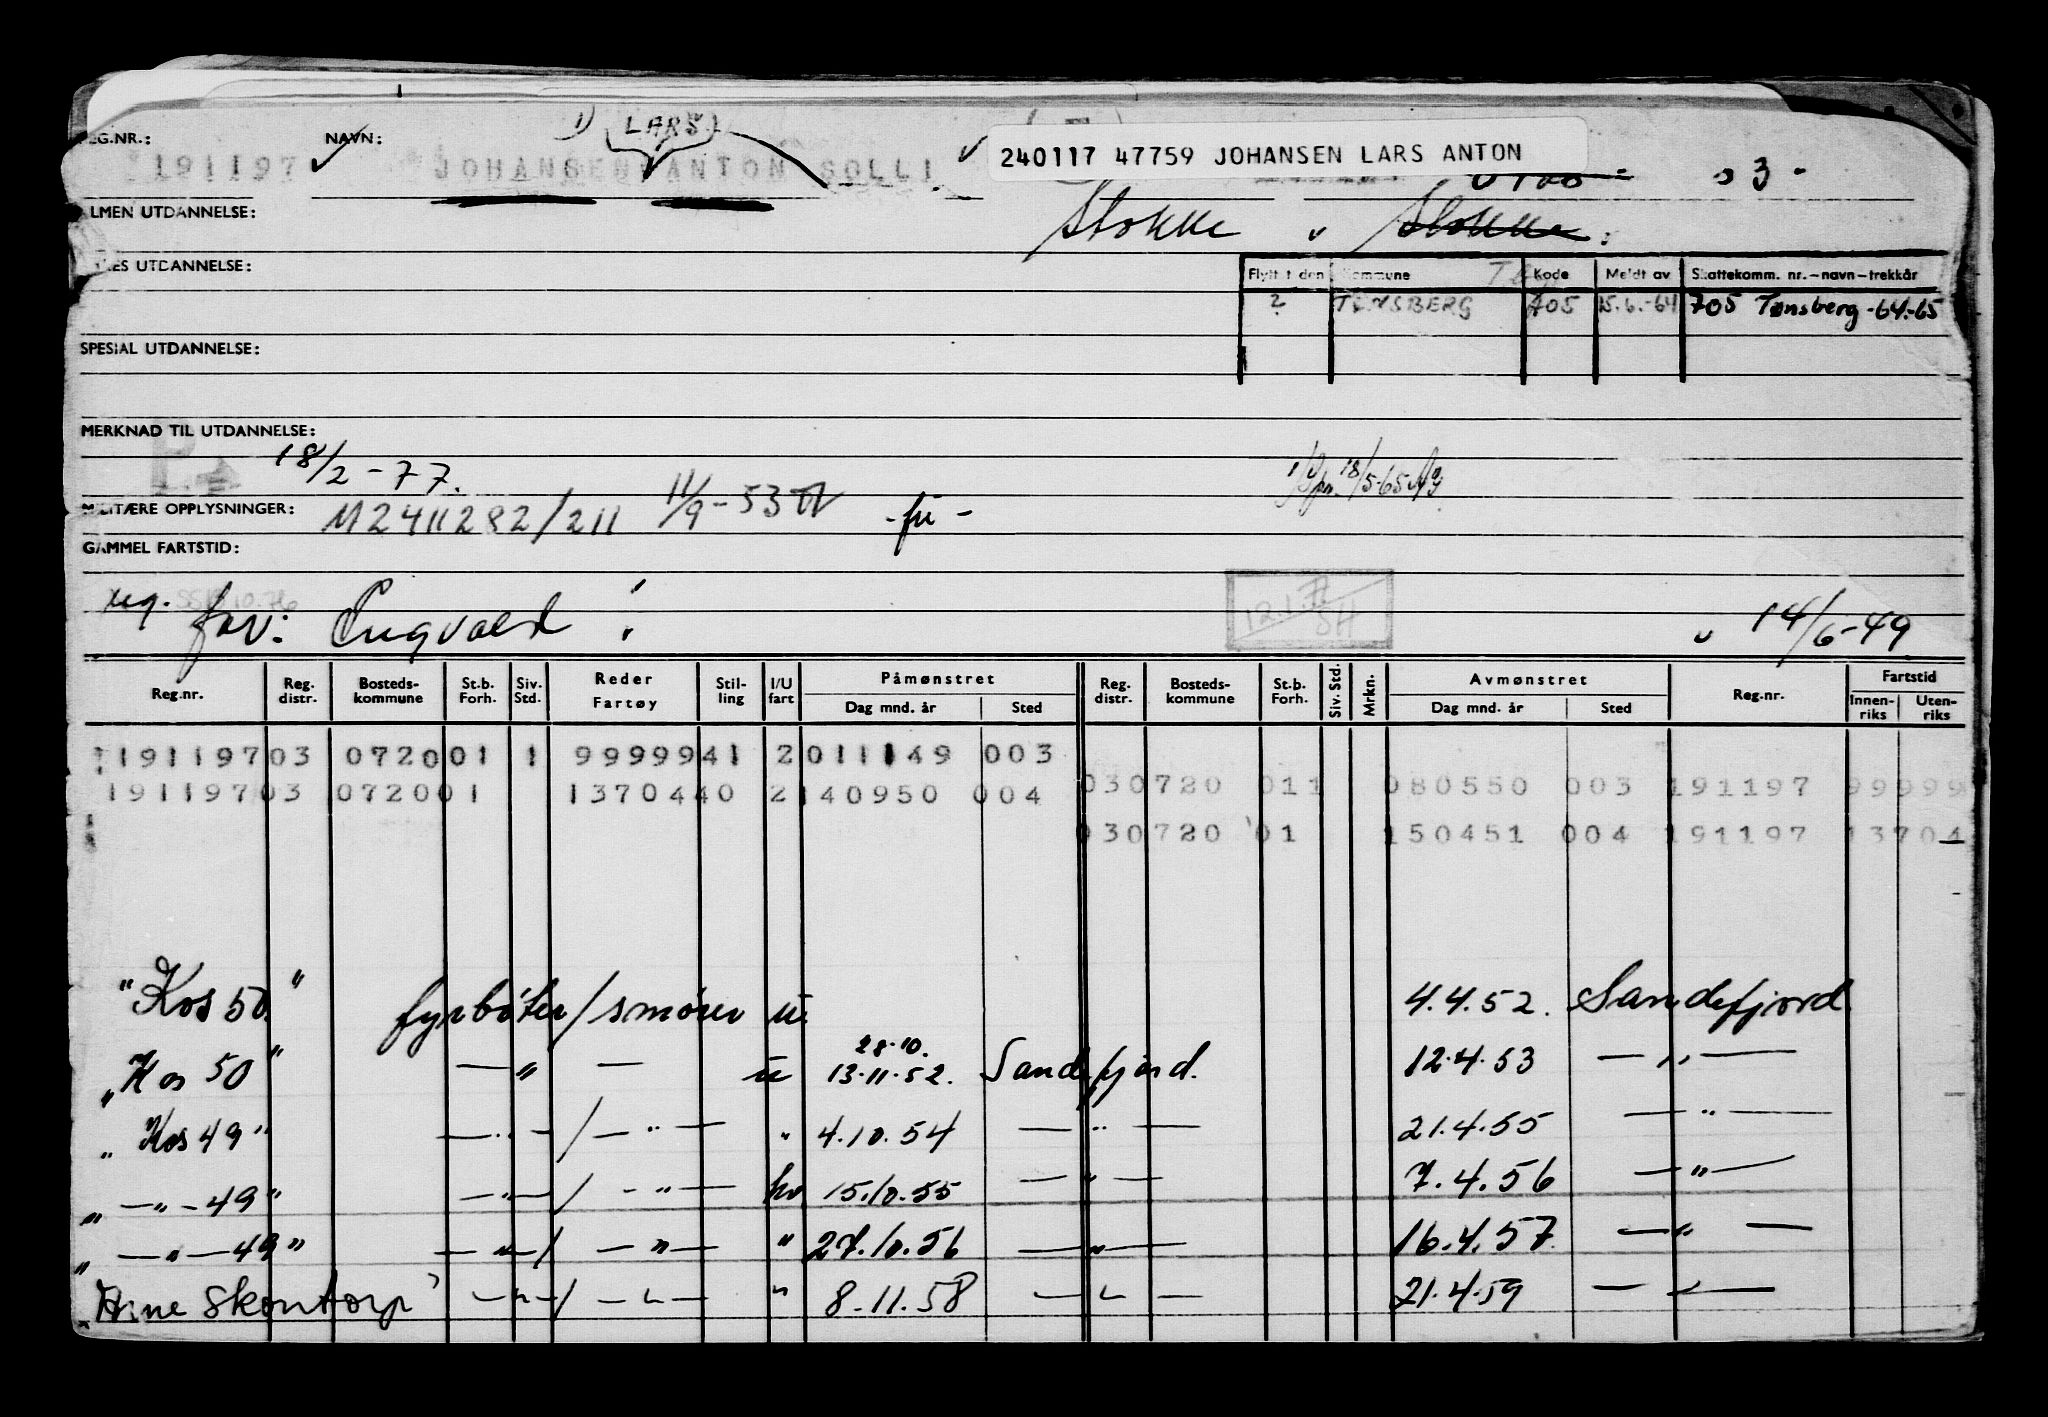 1) (LARS)
EG.NR.: NAVN:
191197 JOHANSEN ANTON SOLLI
240117 47759 JOHANSEN LARS ANTON
3 -
LMEN UTDANNELSE: Stokke Stokke
UTDANNELSE:
Flyttet den Kommune Kode Meldt av Skattekomm. nr.–navn–trekkår
? TØNSBERG 705 15.6.-64 705 Tønsberg -64-65
SPESIAL UTDANNELSE:
MERKNAD TIL UTDANNELSE:
18/2-77. 18/5-65
MILITÆRE OPPLYSNINGER: M2411282/211 11/9-53 -fri-
GAMMEL FARTSTID:
reg. far: Engvald 12.1.77 SH 14/6-49
Reg.nr. Reg. distr. Bosteds-kommune St.b. Forh. Siv. Std. Reder Fartøy Stil-ling I/U fart Påmønstret Dag mnd. år Sted Reg. distr. Bosteds-kommune St.b. Forh. Siv. Std. Mrkn. Avmønstret Dag mnd. år Sted Reg.nr. Fartstid Innen-riks Uten-riks
191197 03 0720 01 1 99999 41 2 011149 003
03 0720 011 080550 003 191197 99999
191197 03 0720 01 13704 40 2 140950 004
03 0720 01 150451 004 191197 13704
"Kos 50" fyrbøter/smører u. 4.4.52. Sandefjord
"Kos 50" — " — u 28.10. 13.11.52. Sandefjord. 12.4.53 — " —
"Kos 49" — " — / — " — " 4.10.54 — " — 21.4.55 — " —
" — " — 49" — " — / — " — hv 15.10.55 — " — 7.4.56 — " —
" — " — 49" — " — / — " — " 27.10.56 — " — 16.4.57. — " —
"Arne Skontorp" — " — / — " — " 8.11.58 — " — 21.4.59 — " —